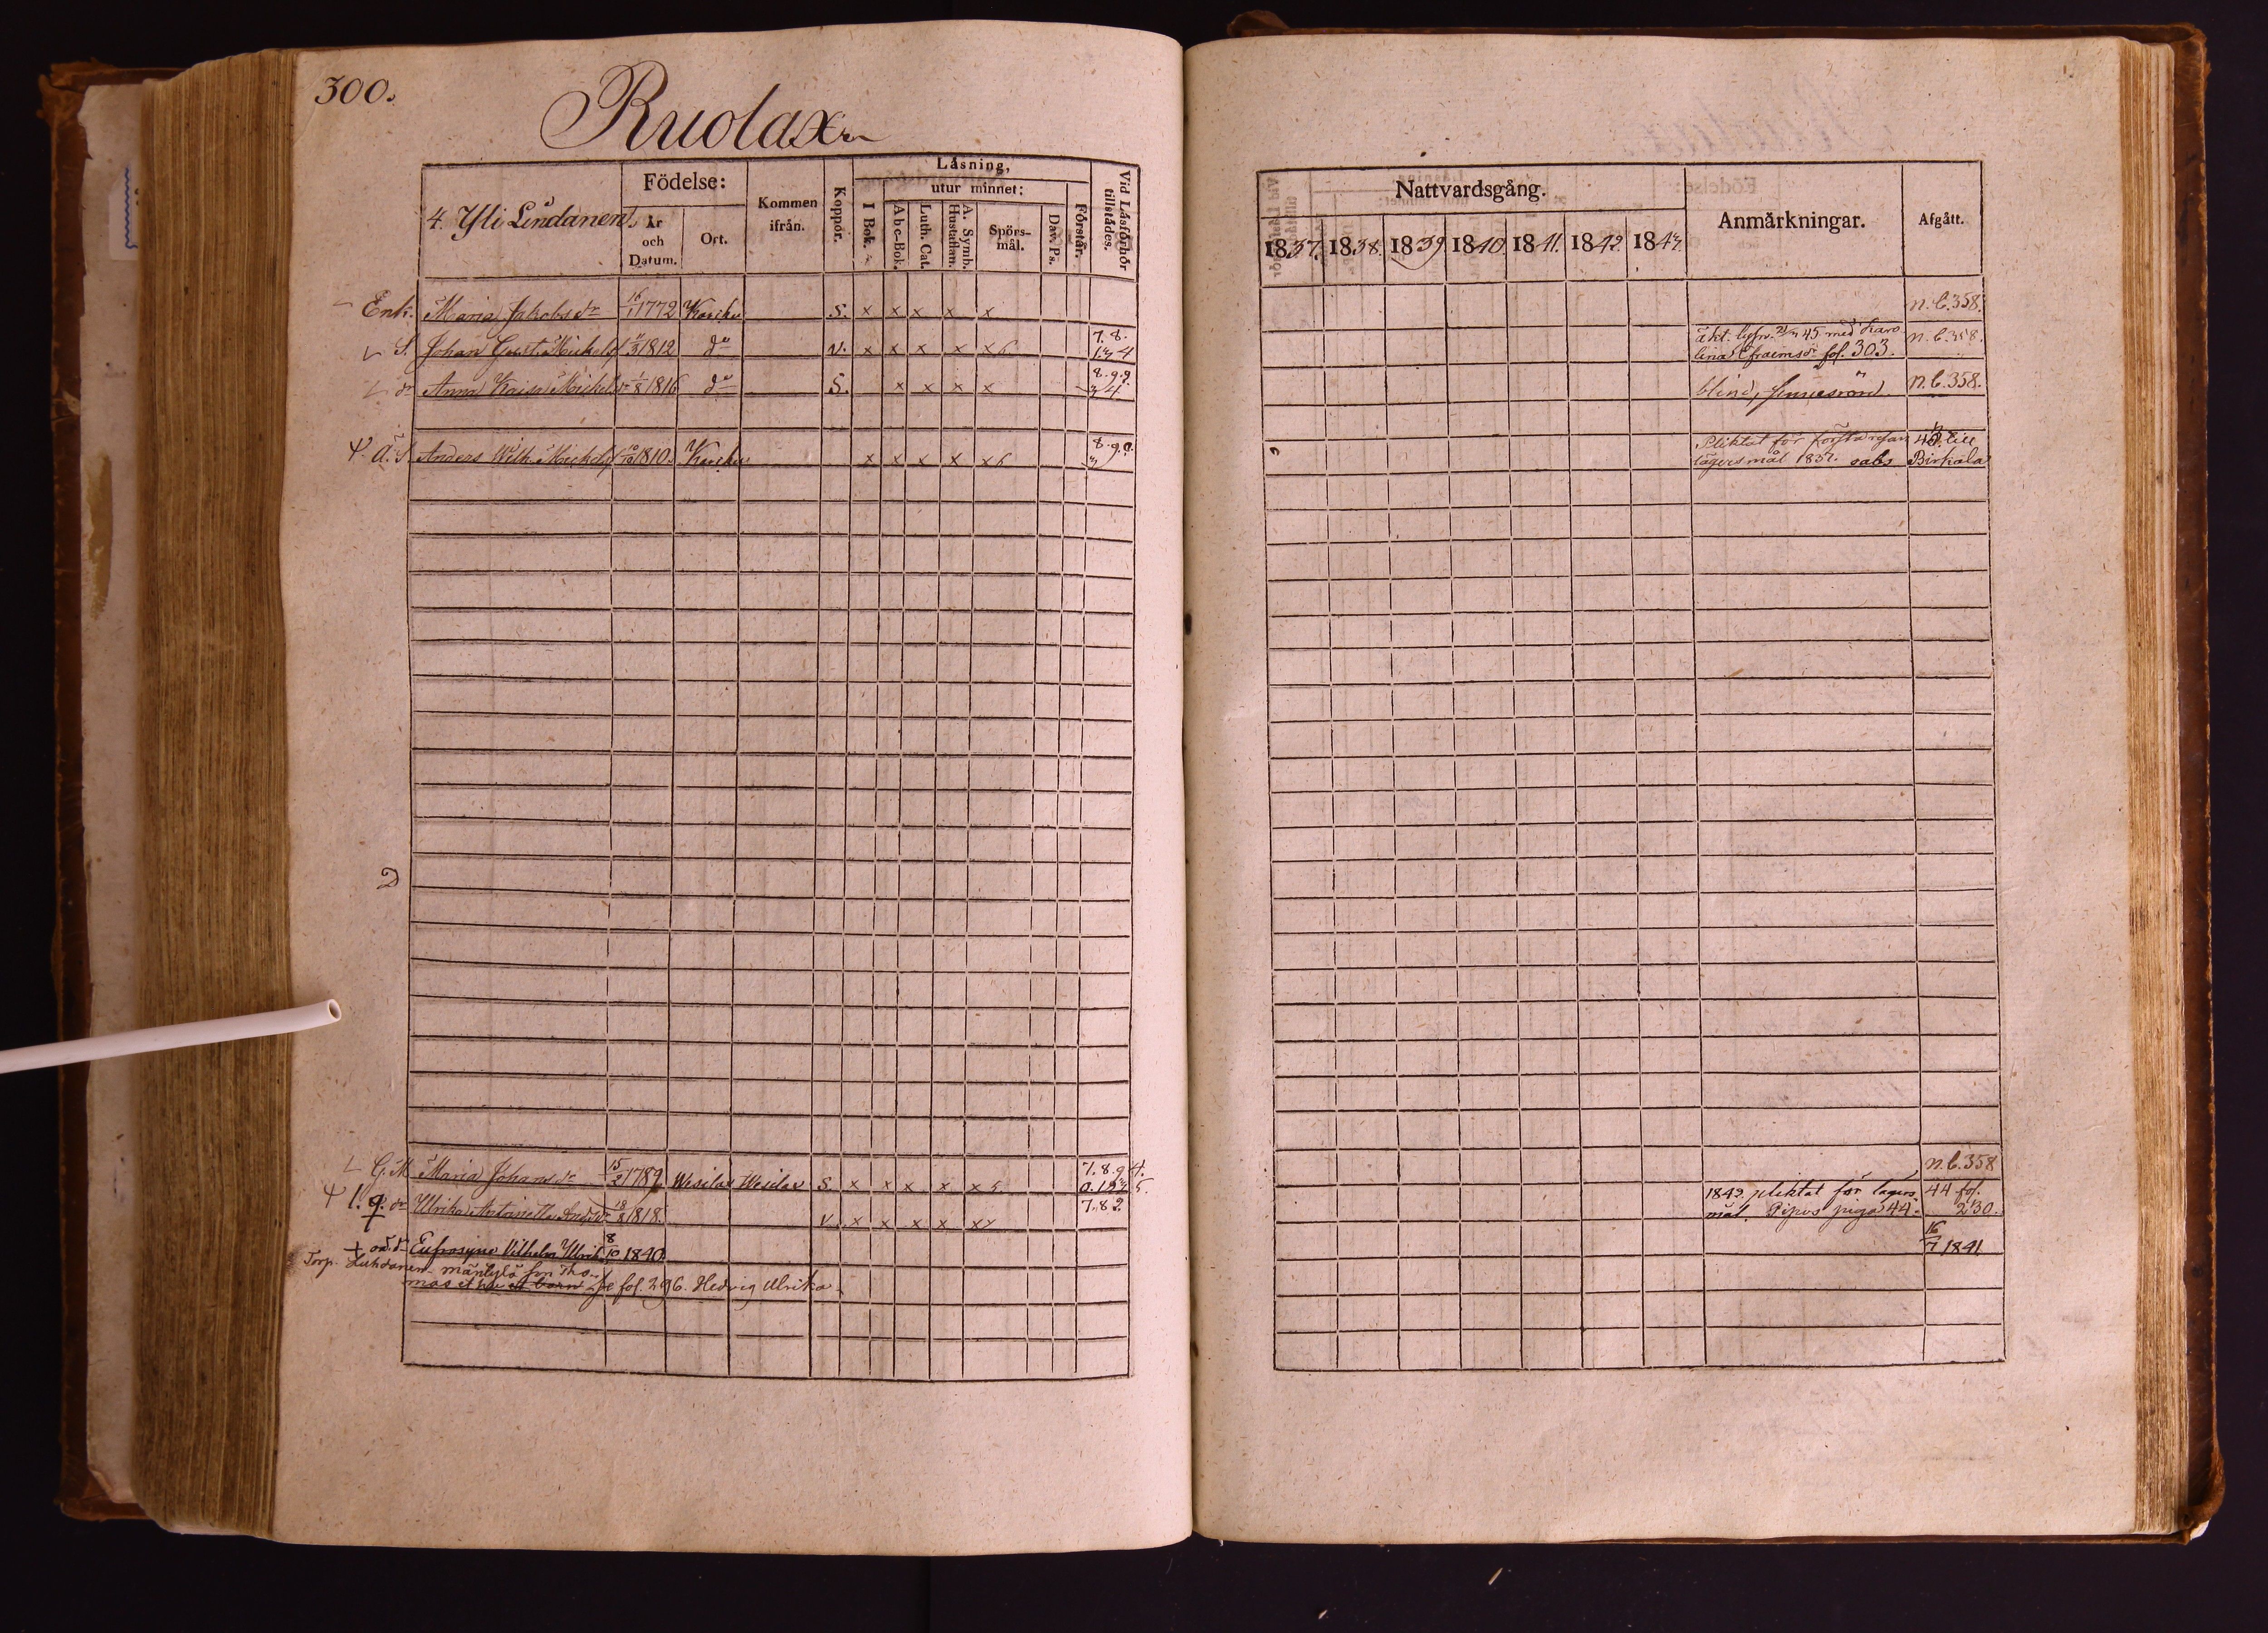 300.
Ruolax
4. Yli Lindanen.
Födelse:
År och Datum.
Ort.
Kommen ifrån.
Koppor.
Läsning,
I Bok.
utur minnet:
Abc-Bok.
Luth. Cat.
A. Symb. Hustaflan.
Spörsmål.
Dav. Ps.
Förstår.
Vid Läsförhör tillstädes.
Enk. Maria Jakobsdr 16/1 1772 Kariku S. x x x x x
S. Johan Gust. Michelsf 11/3 1812 do v. x x x x x6 7.8. 1.3 4
dr Anna Kaisa Michelsdr 1/8 1816 do S. x x x x 8.9.9. 3 4
Ä. S. Anders Wilh. Michelsf 10/10 1810. Kariku x x x x x6 8.9.0. 3
D
G. M. Maria Johansdr 15/2 1789 Wesilax Wesilax S. x x x x x5. 7.8.9 4. 0.123 5.
1. q. dr Ulrika Antoinetta Andsdr 18/8 1818. v. x x x x xx 7.82
+ oä. dr Eufrosyne Vilhelm. Ulrik. 8/10 1840.
Torp. Luhdanen mäntylä fr. Tho-
mas et hu et barn se fol. 296. Hedvig Ulrika
Nattvardsgång.
1837. 1838. 1839 1840. 1841. 1842. 1843
Anmärkningar.
Afgått.
n. b. 358.
äkt. lysn. 45 med Karo- n. b. 358.
lina Efraimsdr fol. 303.
blind, sinnessvag n. b. 358.
Pliktat för första resan 43. till
lägersmål 1837. Birkala
n. b. 358
1842. pliktat för lägers- 44 fol.
mål. Pipos piga 44. 230.
16/7 1841